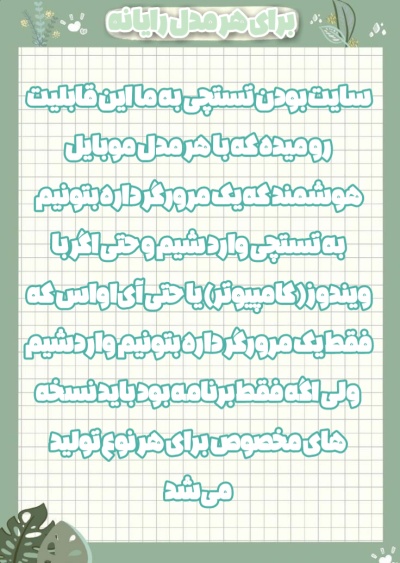 برای هر مدل رایانه
سایت بودن تستچی به ما این قابلیت
رو میده که با هر مدل موبایل
هوشمند که یک مرورگر داره بتونیم
به تستچی وارد شیم و حتی اگر با
ویندوز(کامپیوتر) یا حتی آی او اس که
فقط یک مرورگر داره بتونیم وارد شیم
ولی اگه فقط برنامه بود باید نسخه
های مخصوص برای هر نوع تولید
می شد